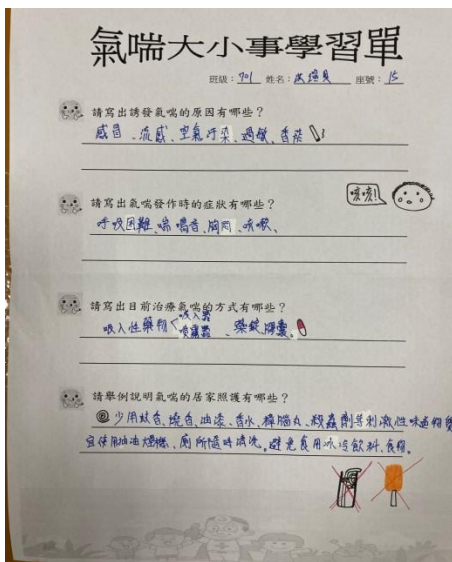 氣喘大小事學習單
班級：701 姓名： 座號：15
請寫出誘發氣喘的原因有哪些？
感冒、流感、空氣汙染、過敏、香菸
請寫出氣喘發作時的症狀有哪些？
咳咳!
呼吸困難、喘鳴音、胸悶、咳嗽、
請寫出目前治療氣喘的方式有哪些？
吸入性藥物 吸入器
噴霧器 、藥錠、膠囊。
請舉例說明氣喘的居家照護有哪些？
少用蚊香、燒香、油漆、香水、樟腦丸、殺蟲劑等刺激性味道物
宜使用抽油煙機、廁所隨時清洗。避免食用冰冷飲料、食物。